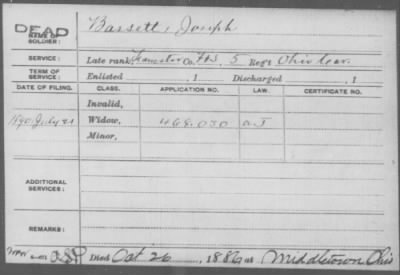 DEAD
NAME OF SOLDIER:
Bassett, Joseph
SERVICE:
Late rank, Teamster Co. F&S, 5 Reg't Ohio Cav.
TERM OF SERVICE:
Enlisted , 1 Discharged , 1
DATE OF FILING. CLASS. APPLICATION NO. LAW. CERTIFICATE NO.
Invalid,
1890 July 21 Widow, 468.030
Minor,
ADDITIONAL SERVICES:
REMARKS:
Died Oct 26, 1886, at Middletown Ohio